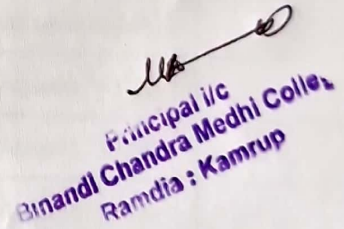 Principal i/c
Binandi Chandra Medhi Colle
Ramdia : Kamrup